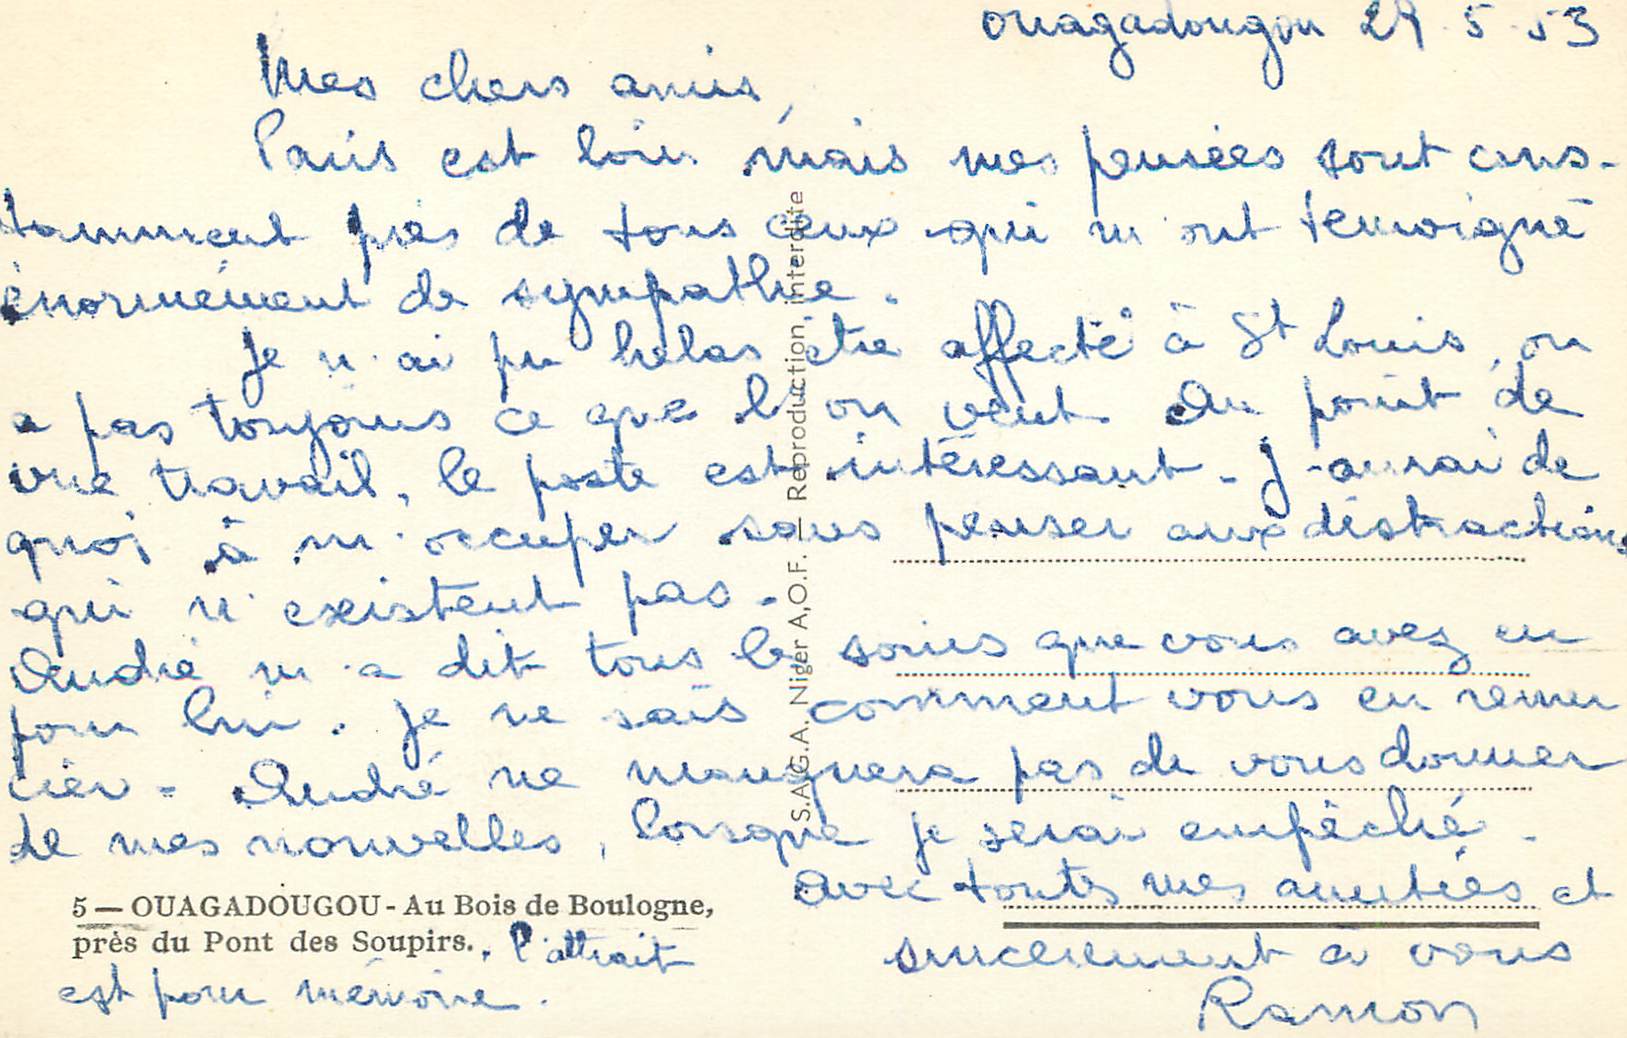 Ouagadougou 29.5.53
Mes chers amis,
Paris est loin mais mes pensées sont cons-
tamment près de tous ceux qui m'ont témoigné
énormément de sympathie.
Je n'ai pu hélas être affecté à St Louis, on
a pas toujours ce que l'on veut. Du point de
vue travail, le poste est intéressant - J'aurai de
quoi à m'occuper sans penser aux distractions
qui n'existent pas -
André m'a dit tous le soins que vous avez eu
pour lui. Je ne sais comment vous en remer
cier - André ne manquera pas de vous donner
de mes nouvelles, lorsque je serai empêché -
Avec toutes mes amitiés et
sincèrement à vous
Ramon
5 — OUAGADOUGOU - Au Bois de Boulogne,
près du Pont des Soupirs. . l'attrait
est pour mémoire.
S.A.G.A. Niger A,O.F. — Reproduction interdite